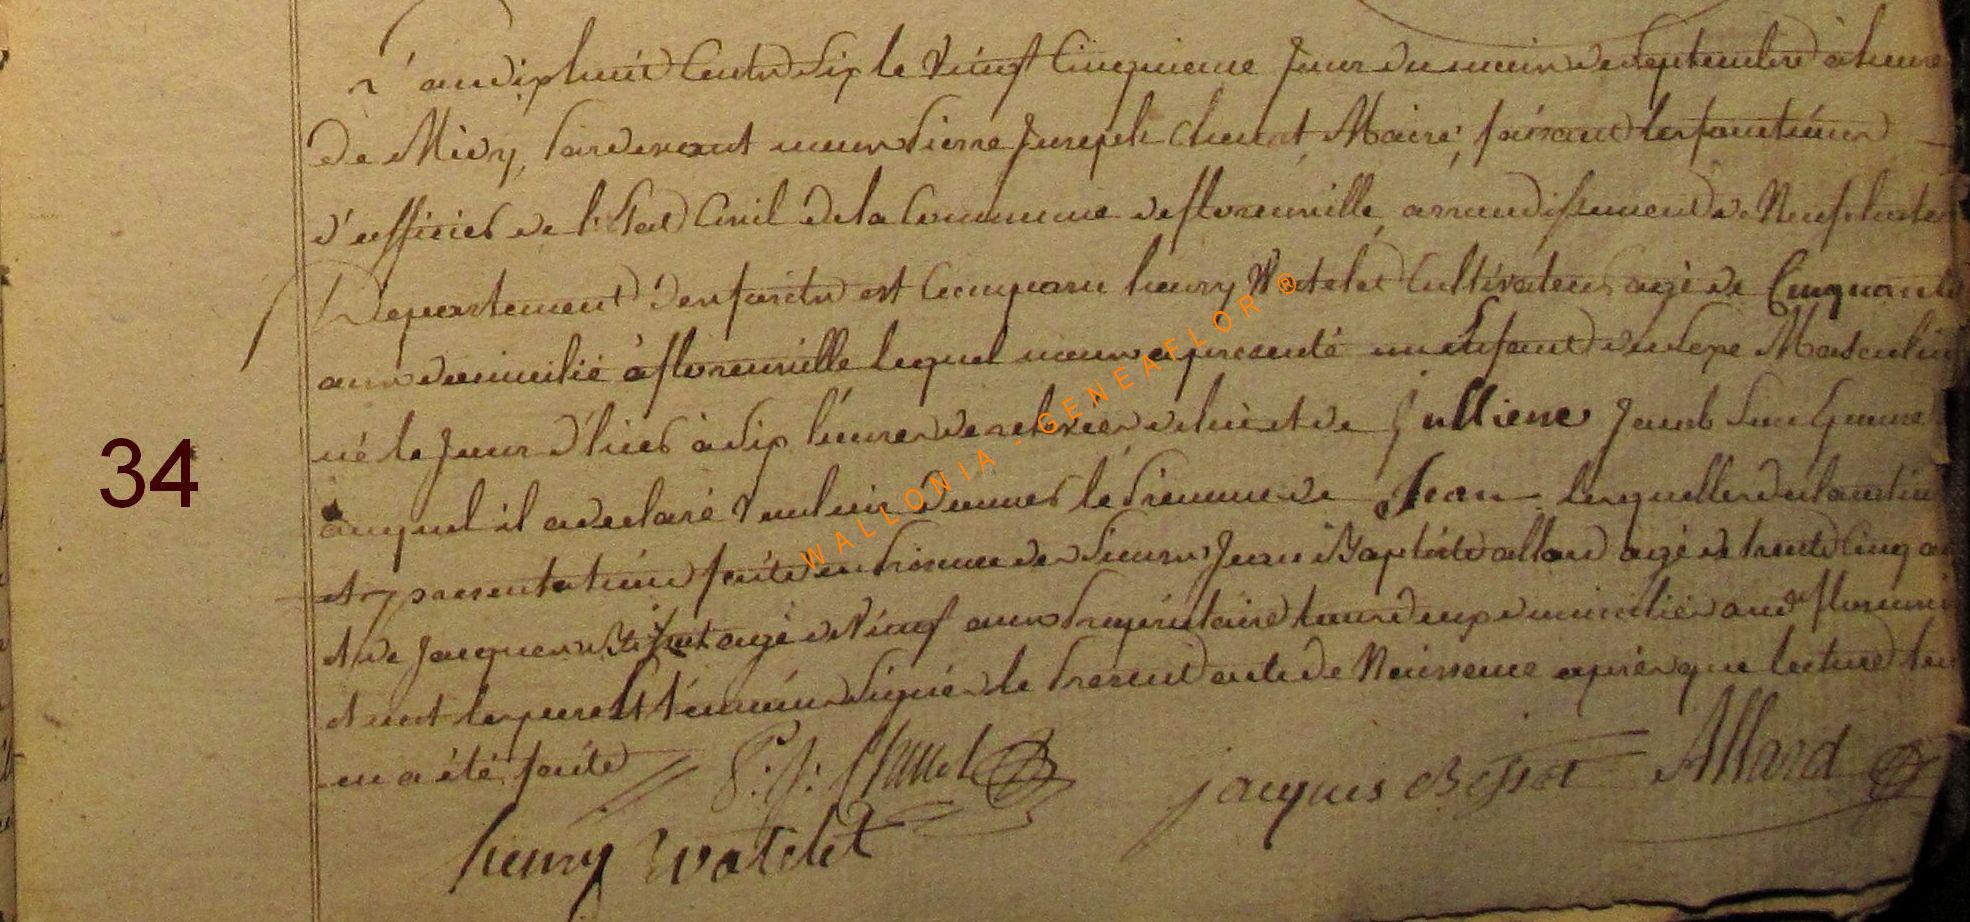 L'an dix huit Cents Six le Vingt Cinquieme Jour du mois de Septembre à heure
de Midy, Pardevant nous Pierre Joseph Maire, faisant les fonctions
d'officier de l'Etat Civil de la Commune de florenville, arrondissement de Neufchateau
Departement des forêts est Comparu henry Watelet Cultivateur agé de Cinquante
ans domicilié à florenville lequel nous a presenté un Enfant du Sexe Masculin
né le Jour d'hier à Six heures de relevée de lui et de Julliene Jacob Son Epouse
auquel il a declaré Vouloir donner le Prenom de Jean lesquelles declaration
et presentation faite en Presence des Sieurs Jean Baptiste allard agé de trente Cinq ans
et de Jacques agé de Vingt ans Propriétaire tous deux domiciliés aud florenville
et ont les pere et témoins Signés le Present acte de Naissence après que lecture leur
en a été faite
P: J:
jacques Allard
henry watelet
34
WALLONIA - GENEAFLOR ®